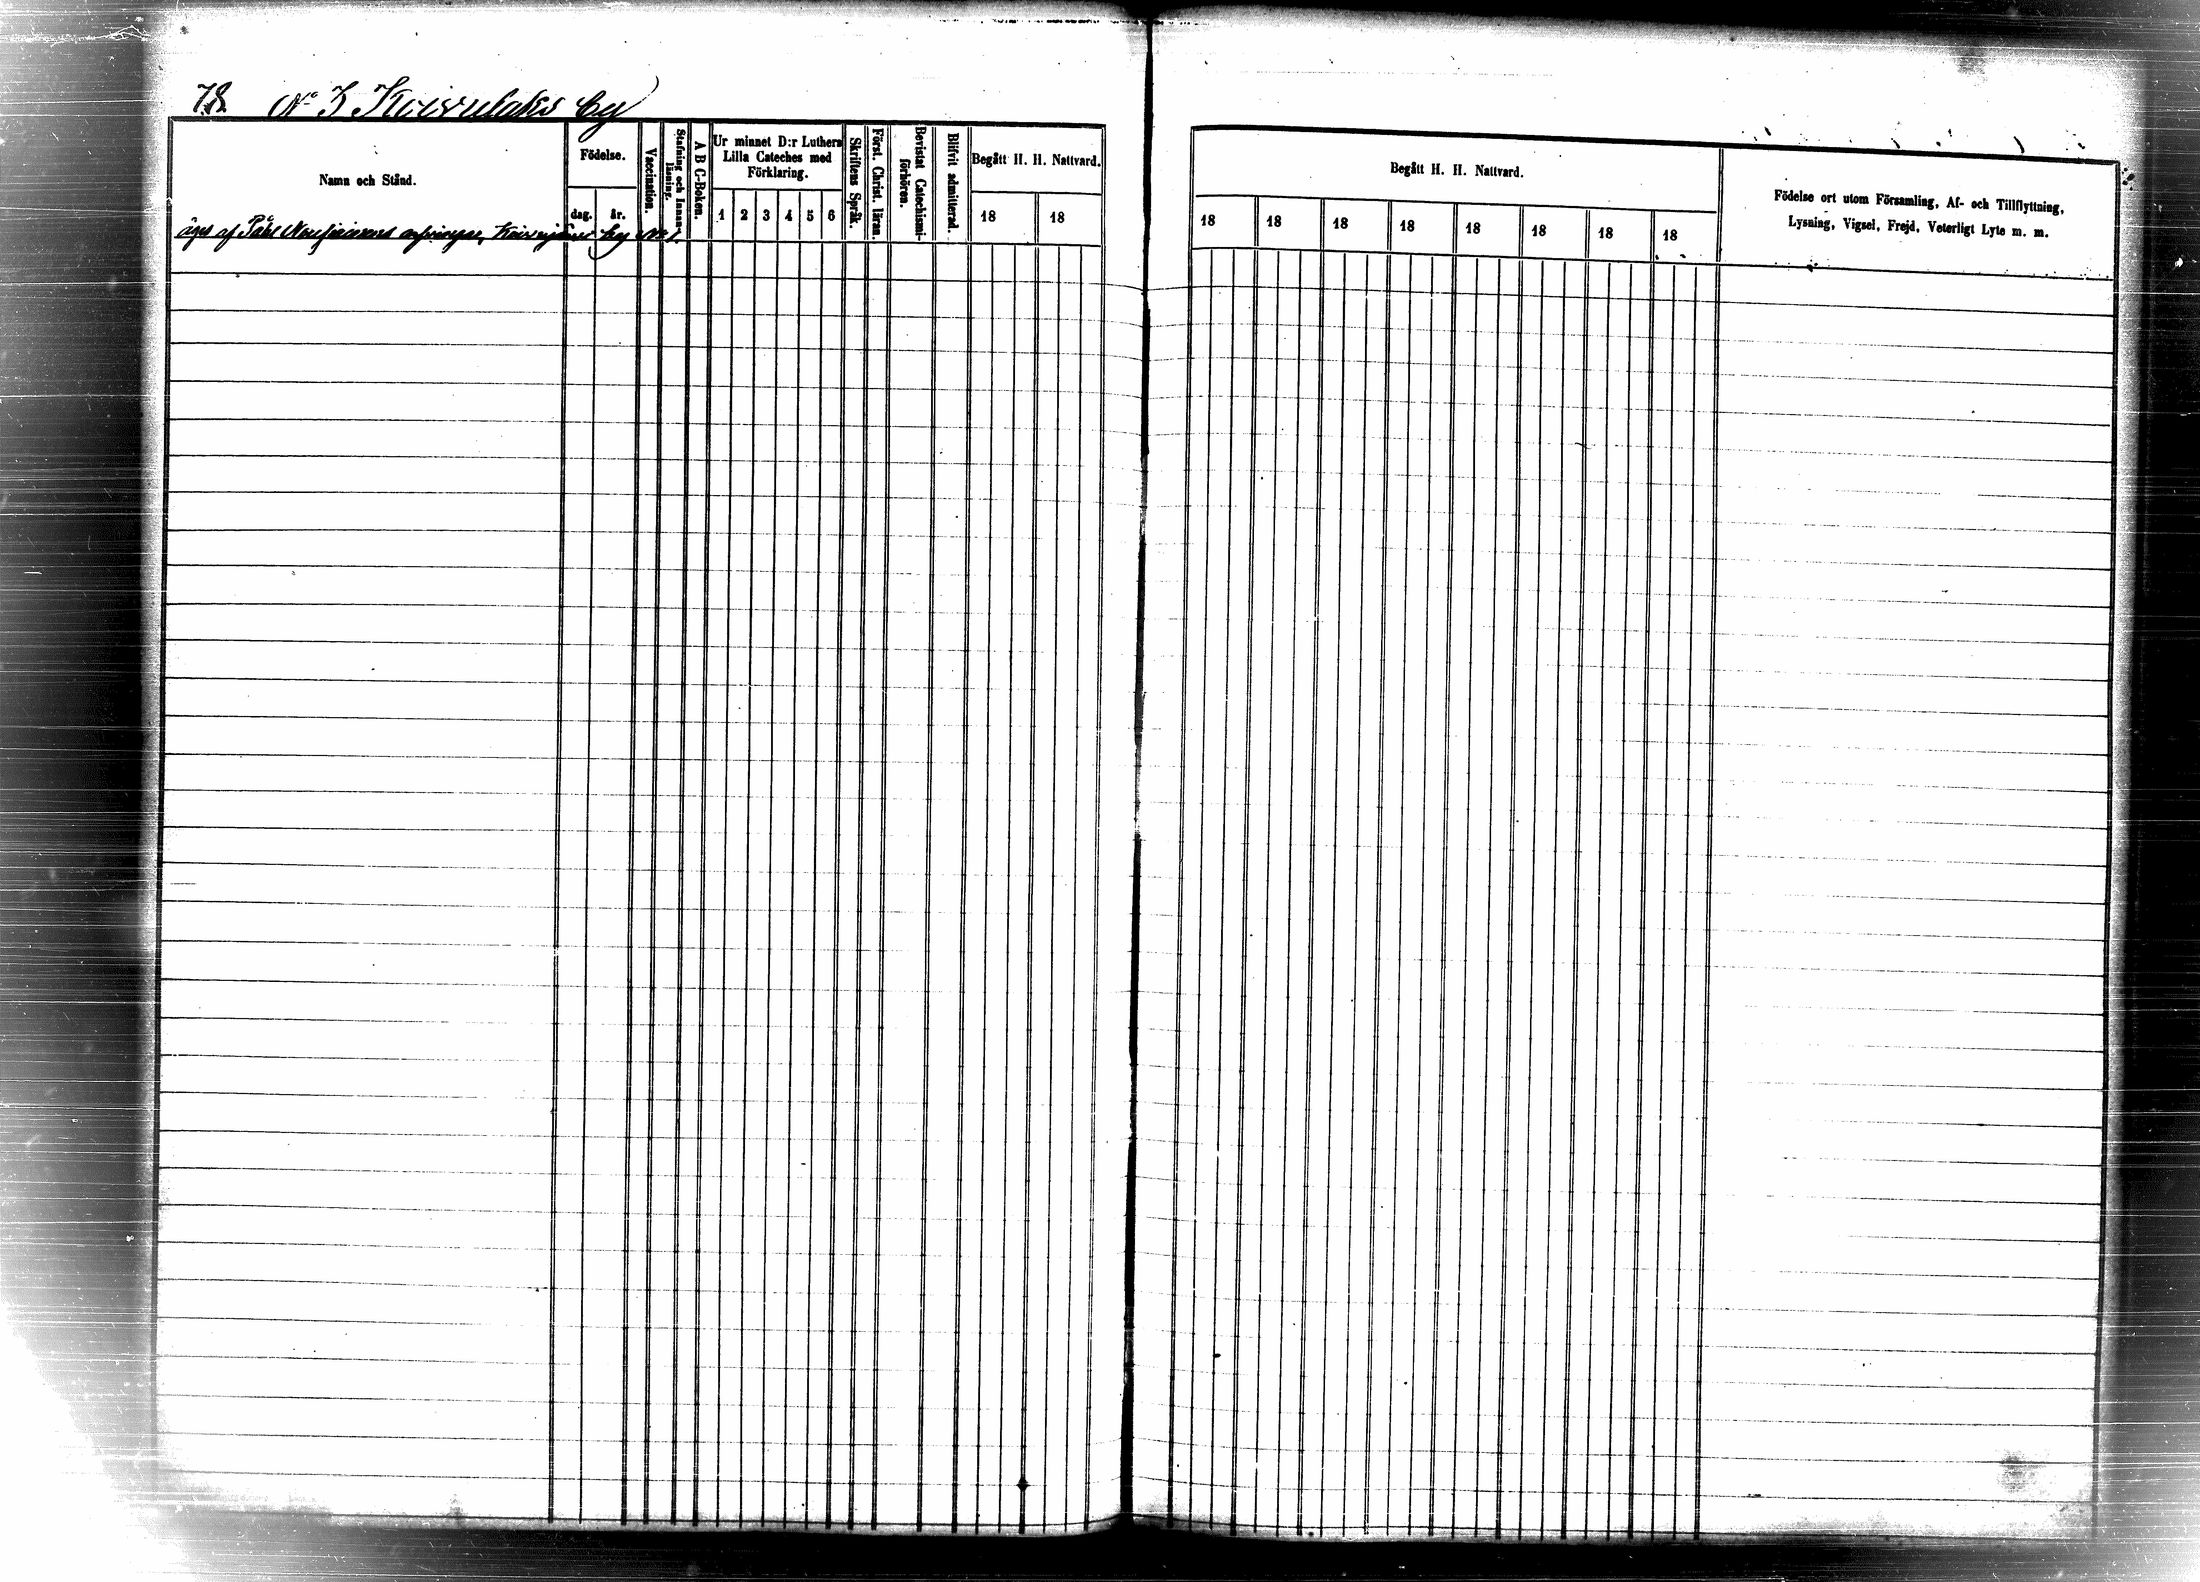 78. No 3 Koivulaks by
Namn och Stånd.
Födelse.
dag. år.
Vaccination.
Stafning och Innan-läsning.
A B C-Boken.
Ur minnet D:r Luthers
Lilla Cateches med
Förklaring.
1 2 3 4 5 6
Skriftens Språk.
Först. Christ. läran.
Bevistat Catechismi-förhören.
Blifvit admitterad.
Begått H. H. Nattvard.
18 18
Begått H. H. Nattvard.
18 18 18 18 18 18 18 18
Födelse ort utom Församling, Af- och Tillflyttning,
Lysning, Vigsel, Frejd, Veterligt Lyte m. m.
äges af Påhl by No 1.